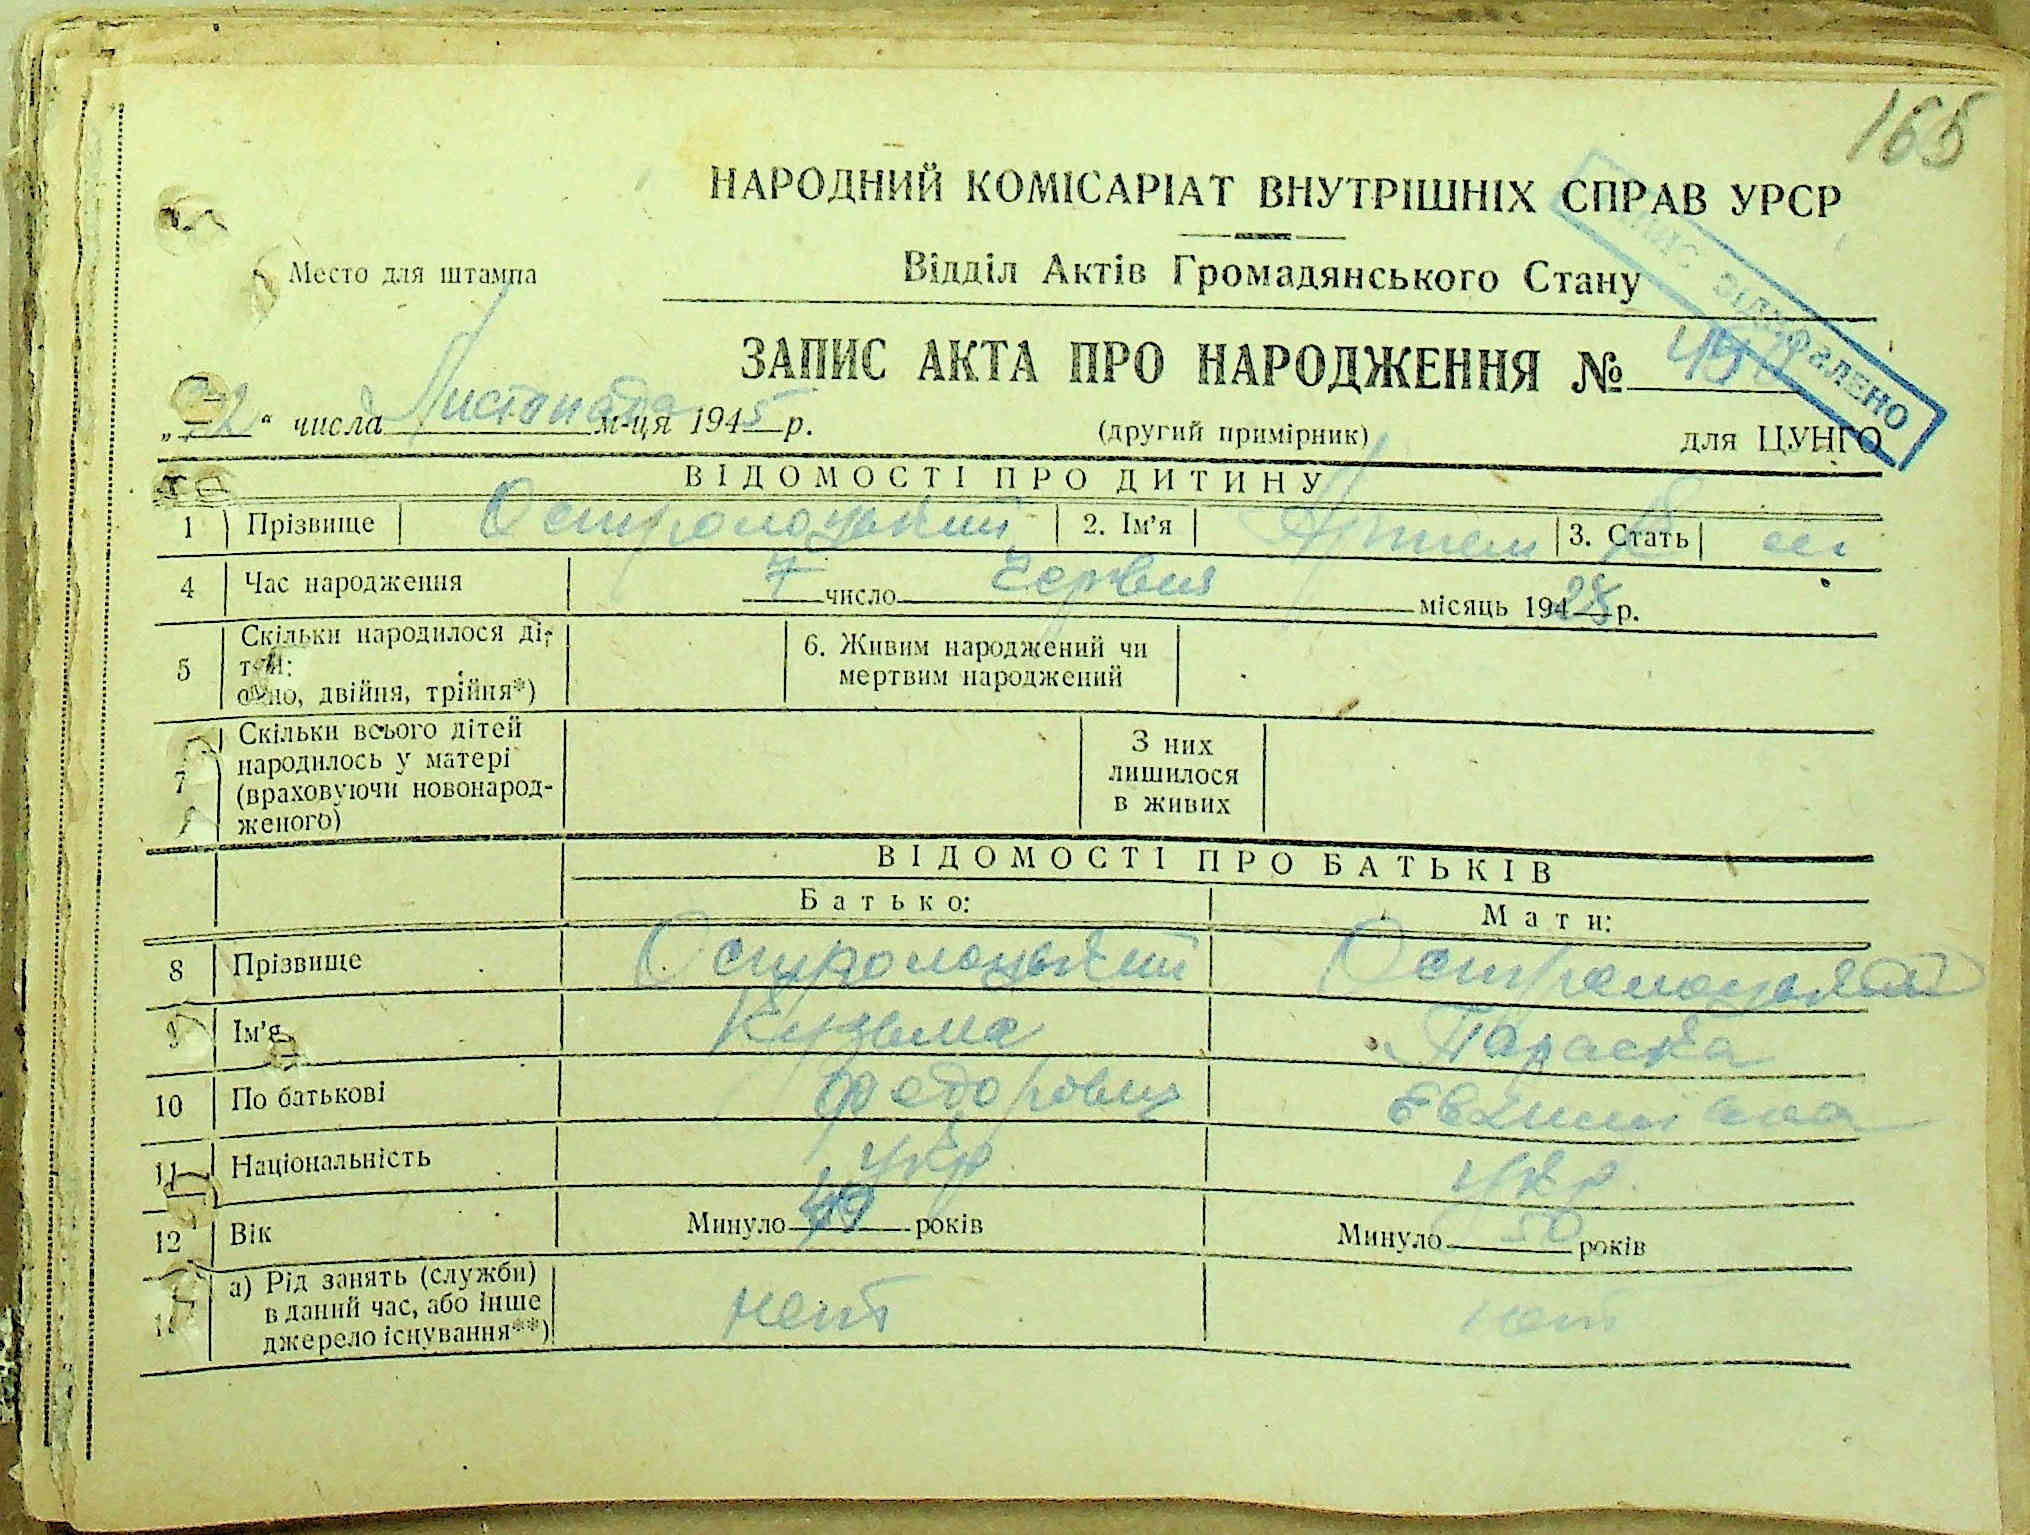 165
НАРОДНИЙ КОМІСАРІАТ ВНУТРІШНІХ СПРАВ УРСР
Место для штампа
Відділ Актів Громадянського Стану
ЗАПИС АКТА ПРО НАРОДЖЕННЯ №
числа Листопада м-ця 1945 р.
(другий примірник)
для ЦУНГО
ВІДОМОСТІ ПРО ДИТИНУ
1 Прізвище 2. Ім'я 3. Стать
4 Час народження 7 число червня місяць 194 р.
5 Скільки народилося ді-
тей:
одно, двійня, трійня*)
6. Живим народжений чи
мертвим народжений
7 Скільки всього дітей
народилось у матері
(враховуючи новонарод-
женого)
З них
лишилося
в живих
ВІДОМОСТІ ПРО БАТЬКІВ
Батько: Мати:
8 Прізвище
9 Ім'я Кузьма Параска
10 По батькові Федорович
11 Національність укр укр
12 Вік Минуло 49 років Минуло 50 років
а) Рід занять (служби)
в даний час, або інше
джерело існування**)
нет нет